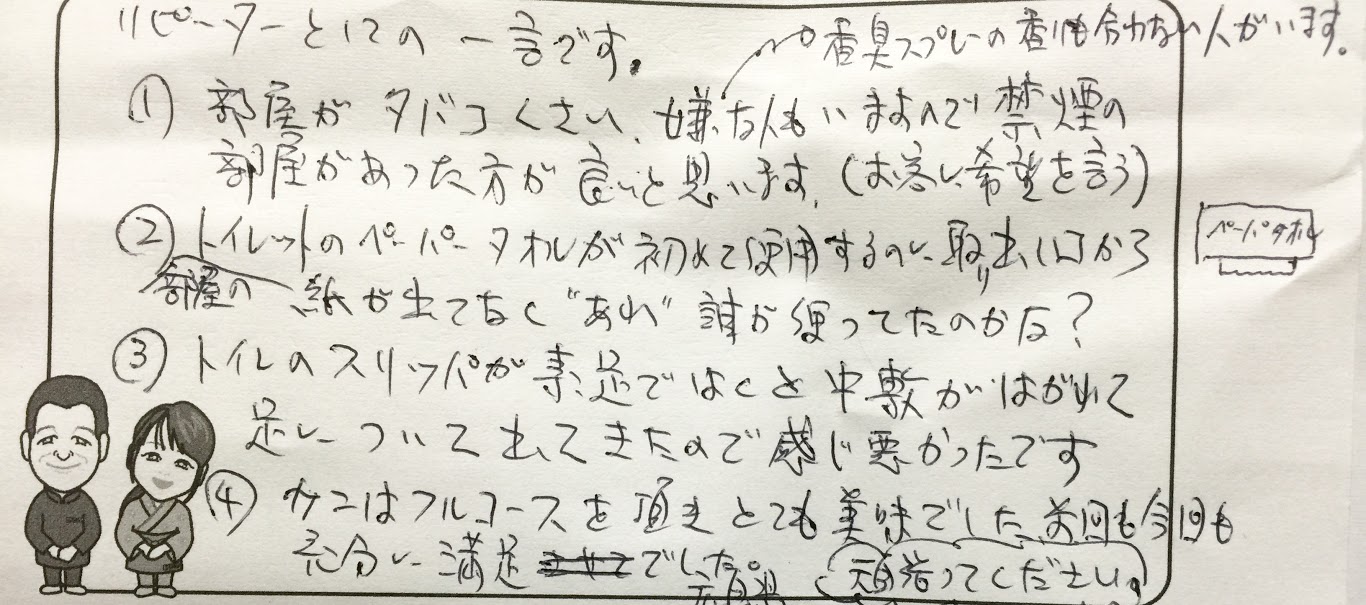 リピーターとしての一言です。
香臭スプレーの香りも合わない人がいます。
① 部屋がタバコくさい、嫌な人もいますので禁煙の
部屋があった方が良いと思います。(お客に希望を言う)
② トイレットのペーパータオルが初めて使用するのに取り出し口から
部屋の
紙が出てなく"あれ"誰か使ってたのかな?
ペーパータオル
③ トイレのスリッパが素足ではくと中敷がはがれて
足について出てきたので感じ悪かったです
④ カニはフルコースを頂きとても美味でした 前回も今回も
充分に満足でした。
頑張ってください。